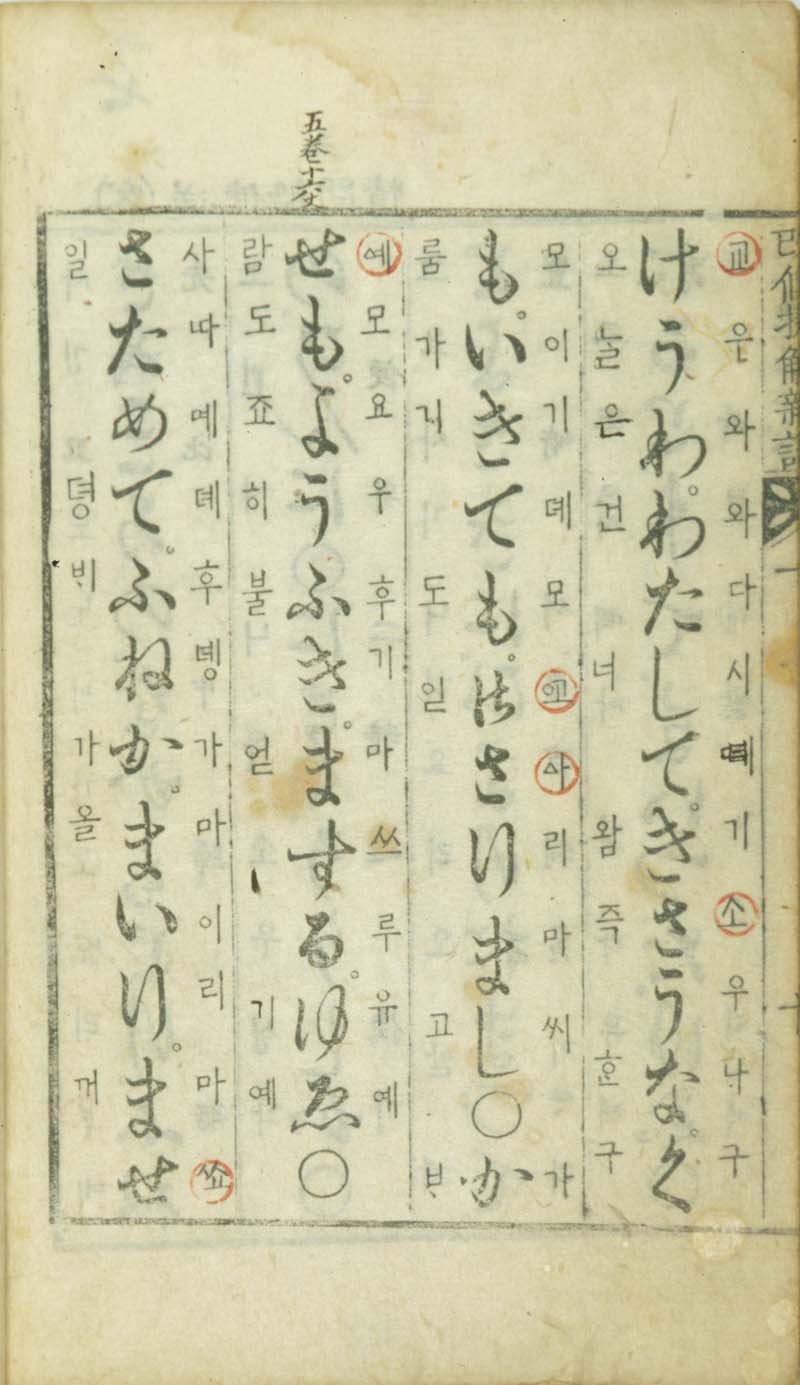 교은와와다시기소우나구
けうわ。わたして。きさうな。く
오ᄂᆞᆯ은건너왐즉ᄒᆞᆫ구
모이기뎨모ᅀᅡ리마씨가
も。いきても。御さりまし〇か
룸가기도일고ᄇᆞ
五卷十六丈
ᅀᅨ모요우후기마쓰루유예
せも。ようふき。まする。ゆゑ〇
람도죠히불얻기예
사따몌뎨후뎽가마이리마쑈
さためて。ふねか。まいり。ませ
일뎡ᄇᆡ가올께